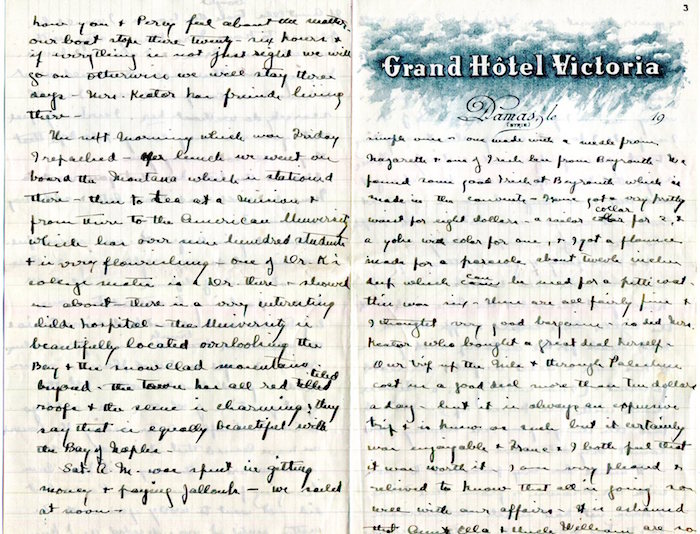 how you & Percy feel about the matter
our boat stops there twenty-six hours &
if everything is not just right we will
go on otherwise we will stay three
says - Mrs. Keator has friends living
there -
The next morning which was Friday
I repacked - after lunch we went on
board the Montana which is stationed
there - then to tea at a mission &
from there to the American University
which has over nine hundred students
& is very flourishing - one of Dr. K's
college mates is a Dr. there & showed
us about - there is a very interesting
childs hospital - the University is
beautifully located overlooking the
Bay & the snow clad mountains
beyond - the town has all red tiled
roofs & the scene is charming & they
say that is equally beautiful with
the Bay of Naples -
Sat. A.M. was spent in getting
money & paying Jallouk - we sailed
at noon -
3
Grand Hôtel Victoria
Damas, le 19
(SYRIE)
simple ones - one made with a needle from
Nazareth & one of Irish lace from Beyrouth - We
found some good Irish at Beyrouth which is
made in the convents - Zane got a very pretty
waist for eight dollars - a sailor collar for 2, &
a yoke with color for one, & I got a flounce
made for a parasole about twelve inches
deep which can be used for a petti coat
this was six - these are all fairly fine &
I thought very good bargains - so did Mrs.
Keator who bought a great deal herself -
Our trip up the Nile & through Palestine
cost us a good deal more than ten dollars
a day - but it is always an expensive
trip & is known as such but it certainly
was enjoyable & Zane & I both feel that
it was worth it - I am very pleased &
relieved to know that all is going so
well with our affairs - It is
that Aunt Ella & Uncle William are so